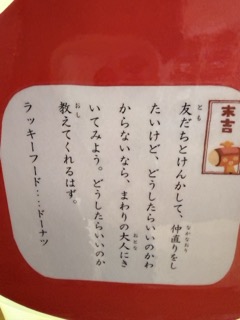 末吉
友だちとけんかして、仲直りをし
たいけど、どうしたらいいのかわ
からないなら、まわりの大人にき
いてみよう。どうしたらいいのか
教えてくれるはず。
ラッキーフード‥‥ドーナツ